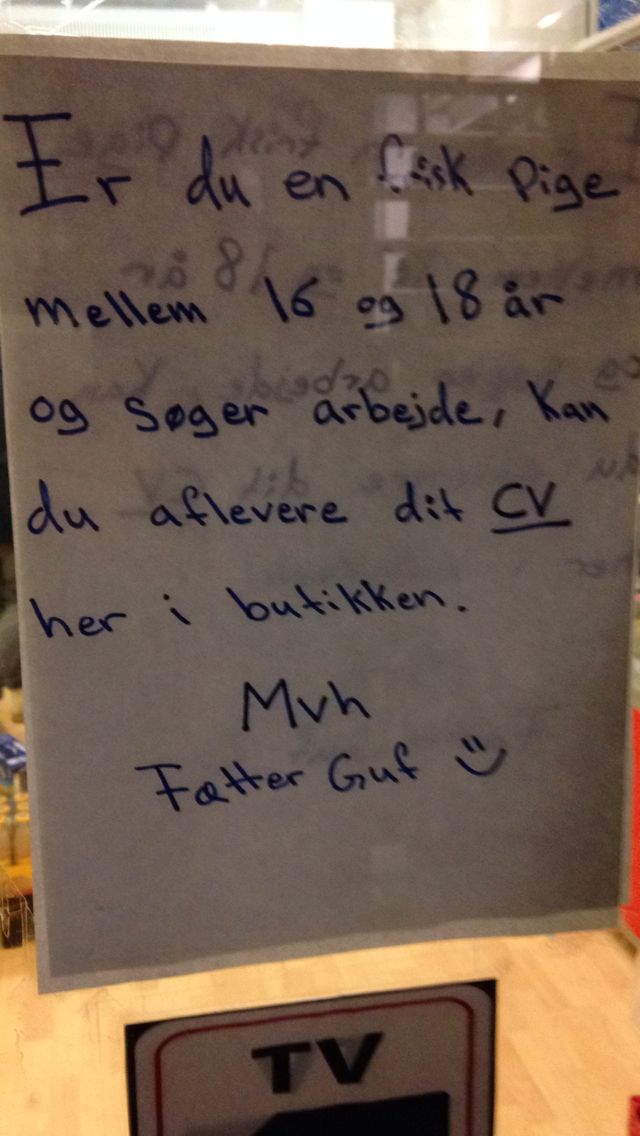 Er du en frisk pige
mellem 16 og 18 år
og søger arbejde, kan
du aflevere dit CV
her i butikken.
Mvh
Fætter Guf
TV